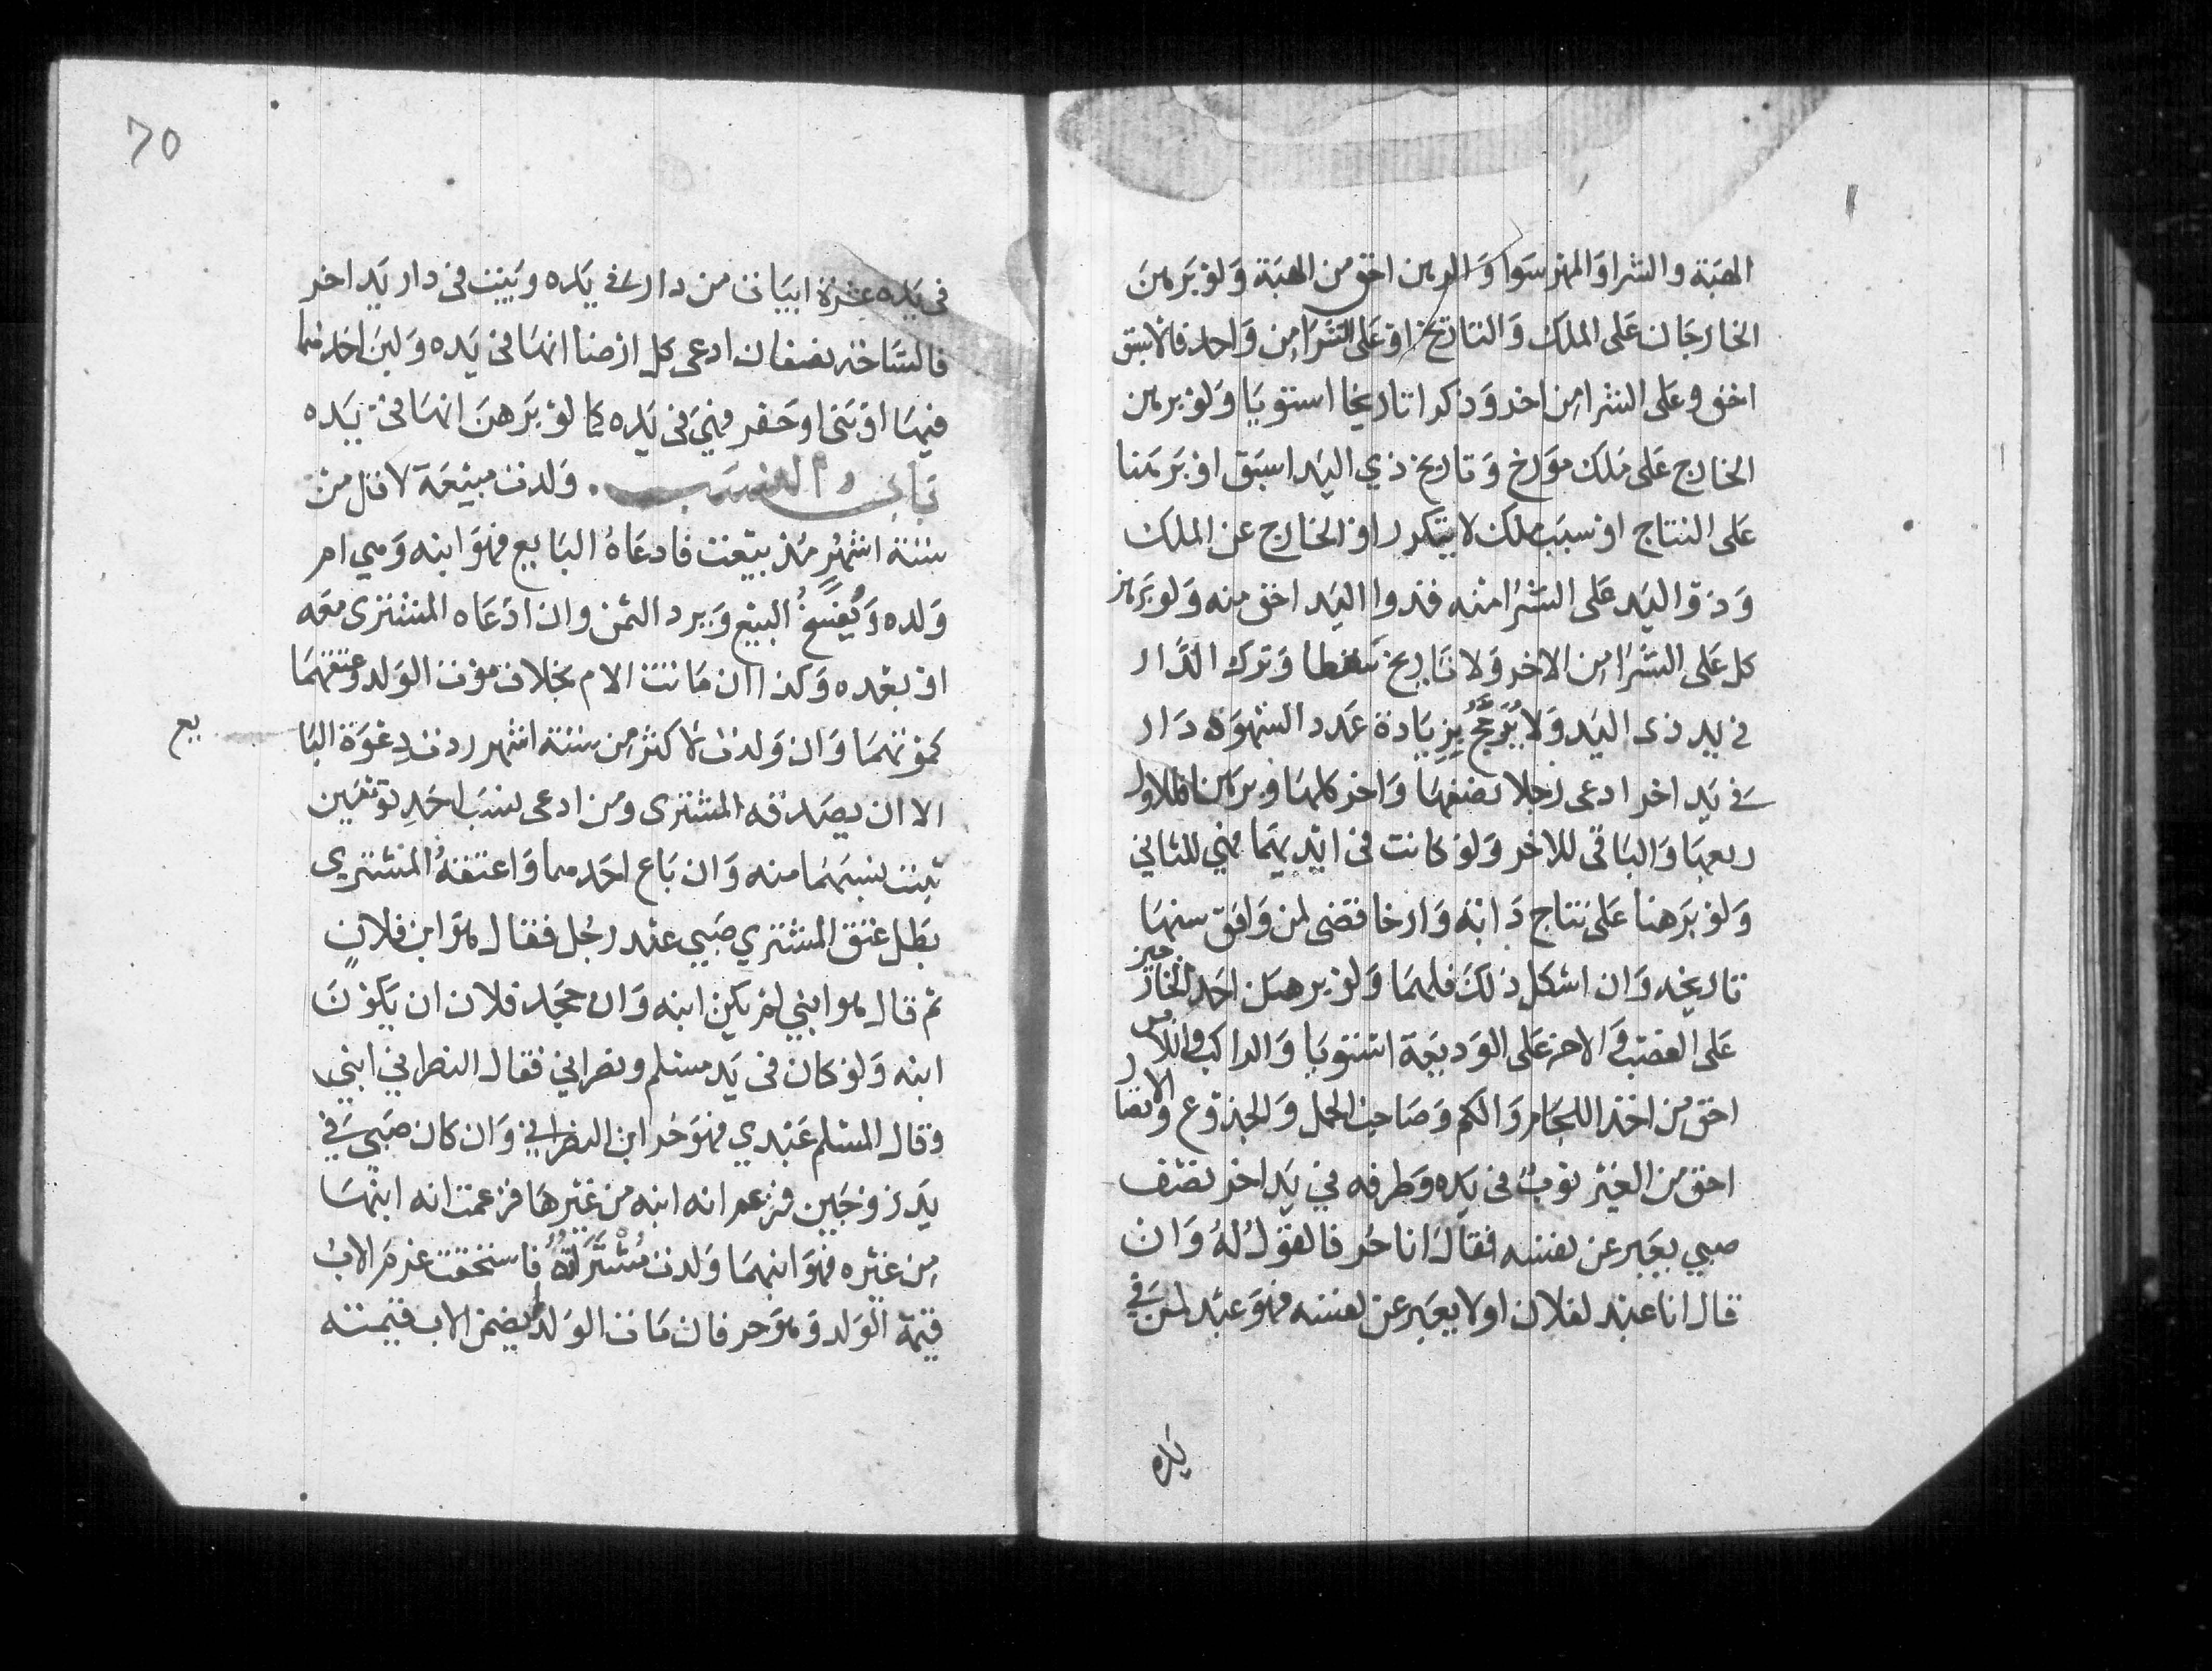 الهبة والشرا والمهر سوا والرهن احق من الهبة ولو برهن
الخارجان على الملك والتاريخ او على الشرا من واحد فالاسبق
احق وعلى الشرا من اخر وذكرا تاريخا استويا ولو برهن
الخارج على ملك مورخ وتاريخ ذي اليد اسبق او برهنا
على النتاج او سبب ملك لا يتكرر او الخارج عن الملك
وذو اليد على الشرا منه فذوا اليد احق منه ولو برهن
كل على الشرا من الاخر ولا تاريخ سقطا وترك الدار
في يد ذى اليد ولا يرجح بزيادة عدد الشهود دار
في يد اخر ادعى رجلا نصفها واخر كلها وبرهنا فللاول
ربعها والباقى للاخر ولو كانت فى ايديهما فهي للثاني
ولو برهنا على نتاج دابة وارخا فقضى لمن وافق سنها
تاريخه وان اشكل ذلك فلهما ولو برهن احد الخارجين
على الغصب والاخر على الوديعة استويا والراكب واللابس
احق من اخذ اللجام والكم وصاحب الحمل والجذوع والاتصال
احق من الغير ثوب فى يده وطرفه في يد اخر نصف
صبي يعبر عن نفسه فقال انا حر فالقول له وان
قال انا عبد لفلان اولا يعبر عن نفسه فهو عبد لمن في
يده
70
فى يده عشرة ابيات من دار في يده وبيت فى دار يد اخر
فالساحة نصفان ادعى كل ارضا انها فى يده ولبن احدهما
فيها او بنى او حفر فهي فى يده كما لو برهن انها فى يده
باب دعوى النسب ولدت مبيعة لاقل من
ستة اشهر مذ بيعت فادعاه البايع فهو ابنه وهي ام
ولده ويفسخ البيع ويرد الثمن وان ادعاه المشترى معه
او بعده وكذا ان ماتت الام بخلاف موت الولد وعتقهما
كموتهما وان ولدت لاكثر من ستة اشهر ردت دعوة البا
يع
الا ان يصدقه المشترى ومن ادعى نسب احد توءمين
ثبت نسبهما منه وان باع احدهما واعتقه المشتري
بطل عتق المشتري صبي عند رجل فقال هو ابن فلان
ثم قال هو ابني لم يكن ابنه وان جحد فلان ان يكون
ابنه ولو كان فى يد مسلم ونصراني فقال النصراني ابني
وقال المسلم عبدي فهو حر ابن النصراني وان كان صبي في
يد زوجين فزعم انه ابنه من غيرها فزعمت انه ابنها
من غيره فهو ابنهما ولدت مشتراة فاستحقت غرم الاب
قيمة الولد وهو حر فان مات الولد لم يضمن الاب قيمته